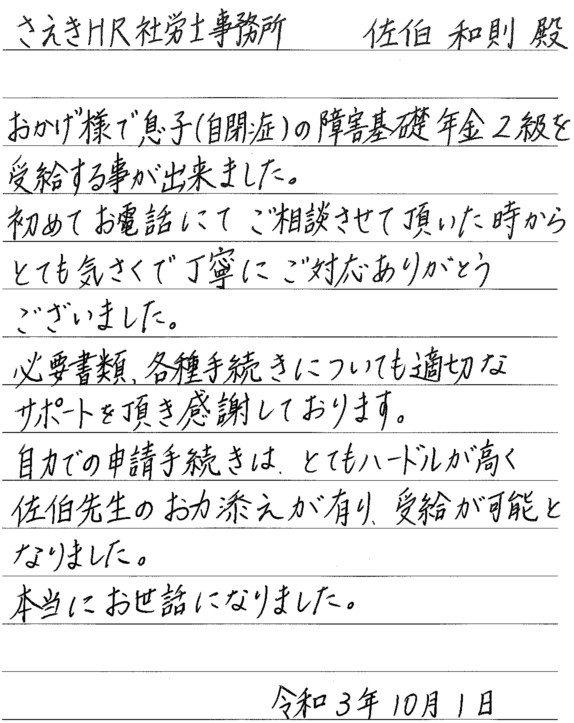 さえきHR社労士事務所　佐伯 和則 殿
おかげ様で息子(自閉症)の障害基礎年金2級を
受給する事が出来ました。
初めてお電話にてご相談させて頂いた時から
とても気さくで丁寧にご対応ありがとう
ございました。
必要書類、各種手続きについても適切な
サポートを頂き感謝しております。
自力での申請手続きは、とてもハードルが高く
佐伯先生のお力添えが有り、受給が可能と
なりました。
本当にお世話になりました。
令和3年10月1日